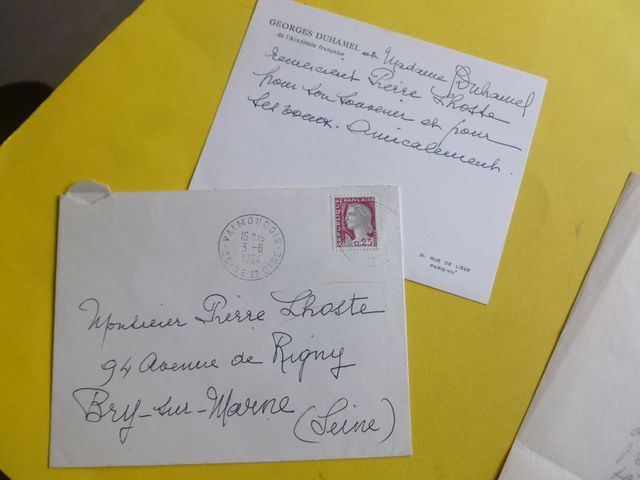 GEORGES DUHAMEL
de l'Académie française
et Madame Duhamel
remercient Pierre Lhoste
pour son souvenir et pour
ses voeux. Amicalement.
31, RUE DE LIÈGE
PARIS-VIIIe
VALMONDOIS
16 H 15
3-8
SEINE ET OISE
REPUBLIQUE FRANÇAISE
0,25
Monsieur Pierre Lhoste
94 Avenue de Rigny
Bry-sur-Marne
(Seine)